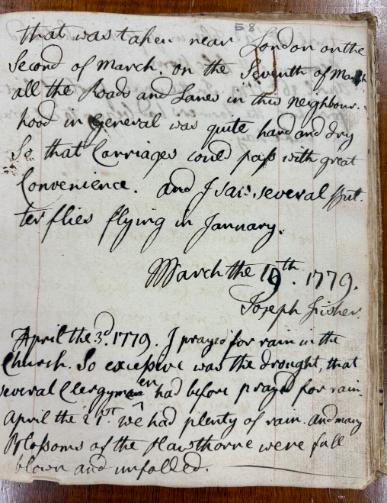 58
that was taken near London on the
Second of March. on the Seventh of March
all the Roads and Lanes in this neighbour-
hood in General was quite hard and dry
So that Carriages could pass with great
Convenience. and I saw several But
ter flies flying in January.
March the 19th. 1779.
Joseph Fisher.
April the 3d. 1779. I prayed for rain in the
Church. So excessive was the drought, that
several Clergymen had before prayd for rain.
April the 21st we had plenty of rain. and many
Blossoms of the Hawthorne were full
blown and unfolded.